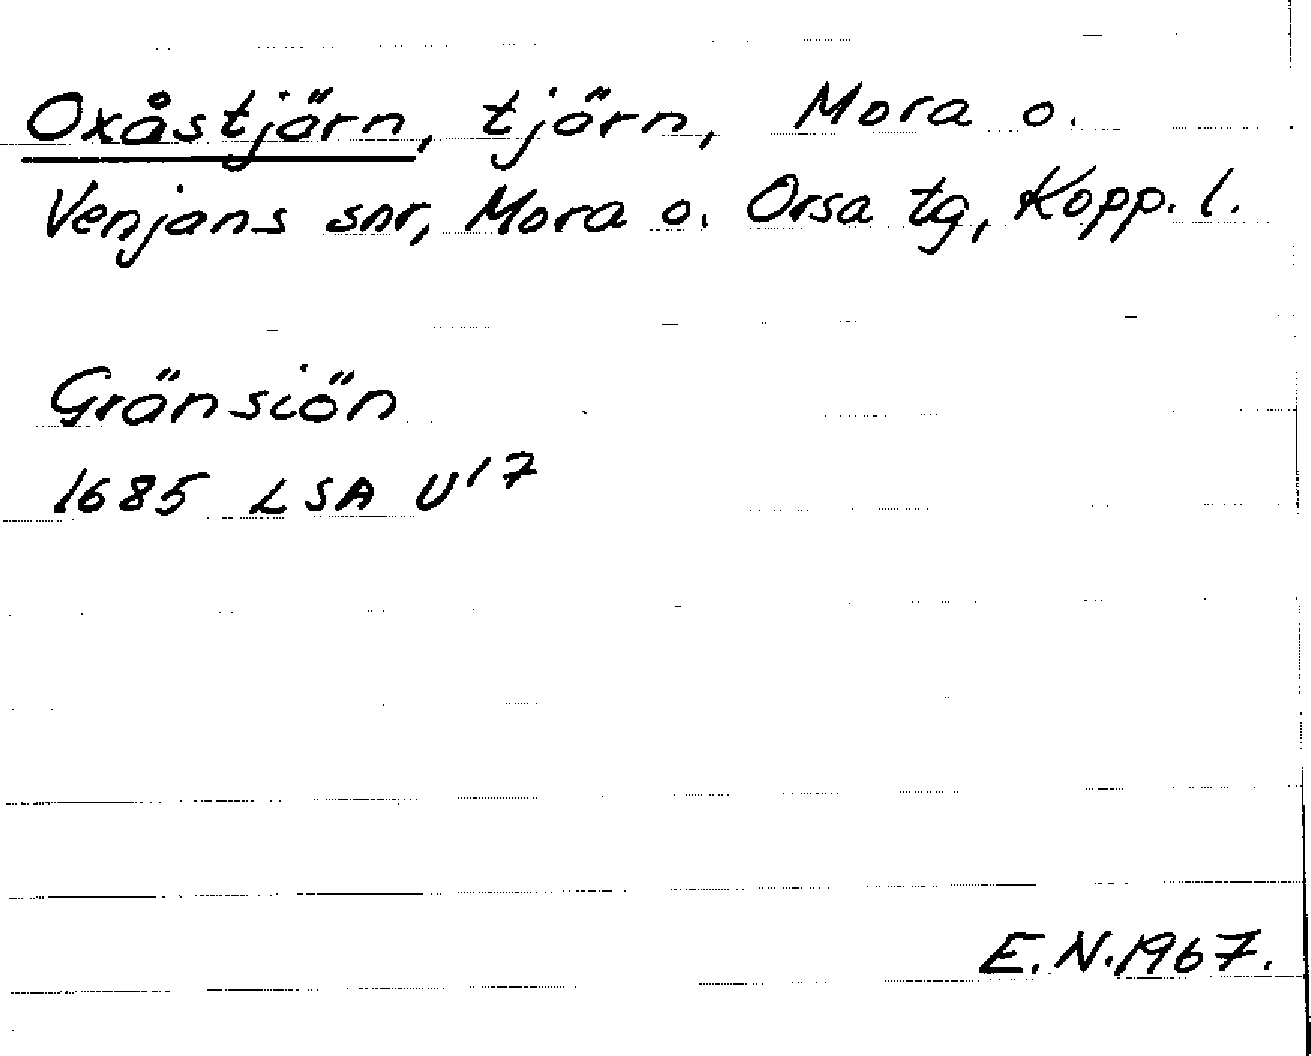 Oxåstjärn, tjärn, Mora o.
Venjans snr, Mora o. Orsa tg, Kopp. l.
Gränsiön
1685 LSA U¹⁷
E.N.1967.